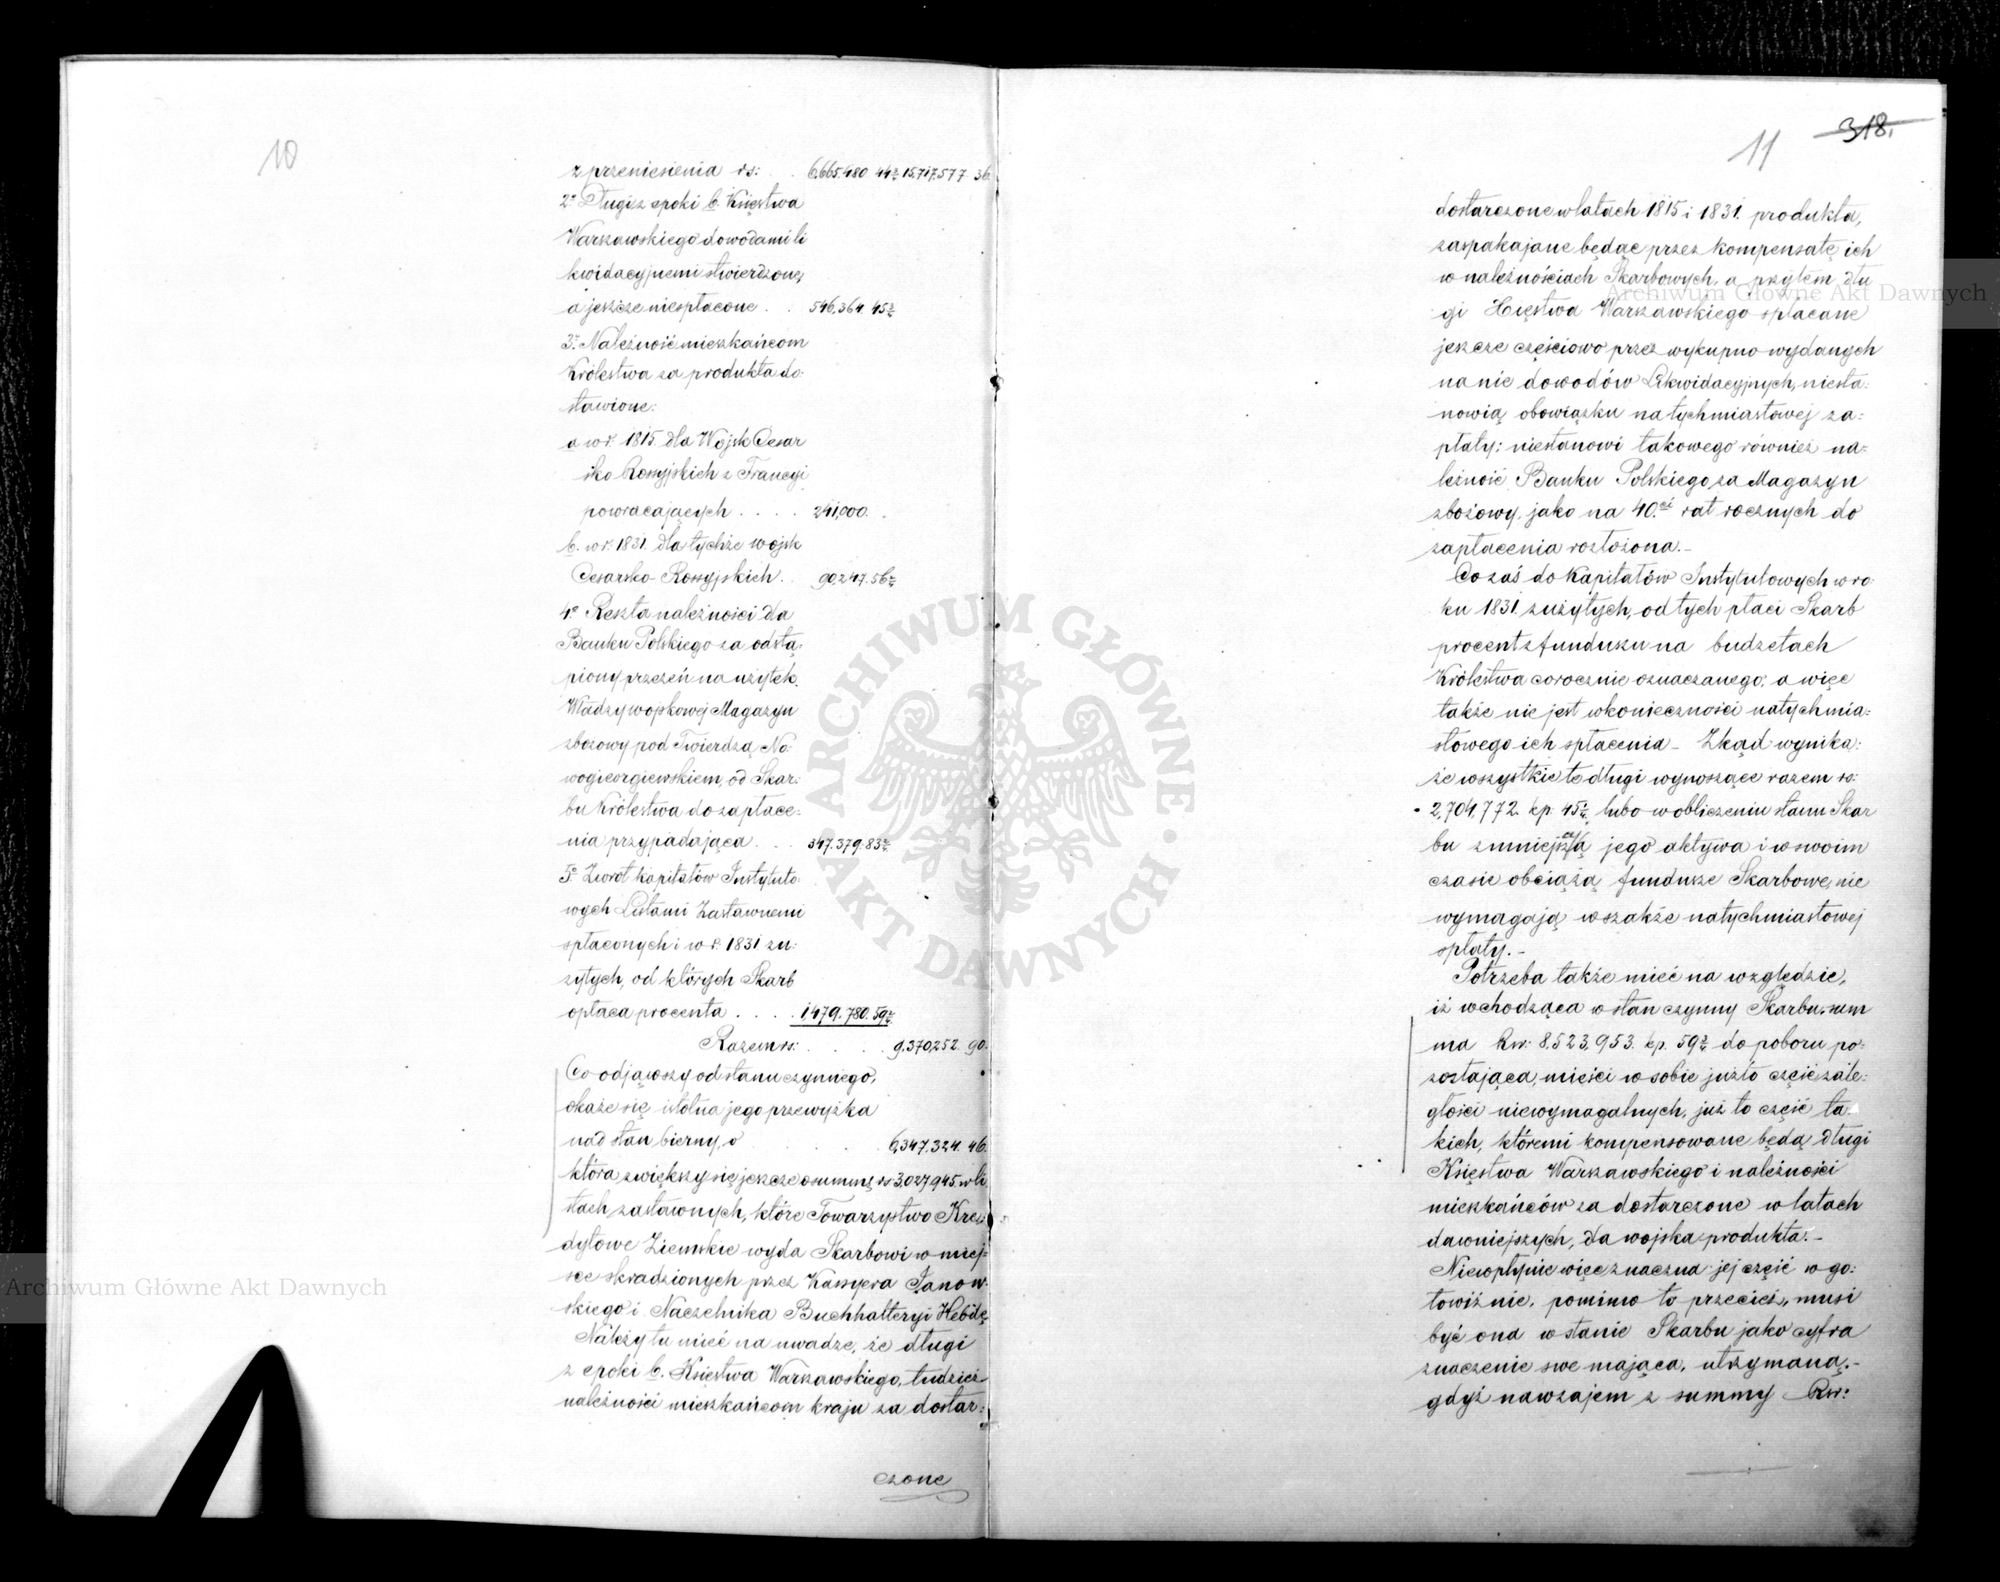 10
z przeniesienia rs: . . 6,665,480 44½ 15,717,577 36.
2º Długi z epoki b. Księstwa
Warszawskiego dowodami li
kwidacyjnemi stwierdzone,
a jeszcze niespłacone . . 546,364. 45½
3º. Należność mieszkańcom
Królestwa za produkta do:
stawione:
a w r. 1815. dla Wojsk Cesar
sko Rossyjskich z Francyi
powracających . . . . 241,000. .
b. w r. 1831. dla tychże wojsk
Cesarsko-Rossyjskich. . 90,247. 56½
4º Reszta należności dla
Banku Polskiego za odstą:
piony przezeń na użytek
Władzy wojskowej Magazyn
zbożowy pod Twierdzą No:
wogieorgiewskiem, od Skar:
bu Królestwa do zapłace:
nia przypadająca . . . 347,379. 83½
5º Zwrot kapitałów Instytuto:
wych Listami Zastawnemi
spłaconych i w r. 1831 zu:
żytych, od których Skarb
opłaca procenta . . . . 1,479,780. 59½
Razem rs: . . . . 9,370,252. 90.
Co odjąwszy od stanu czynnego,
okaże się istotna jego przewyżka
nad stan bierny, o . . . . 6,347,324. 46.
która zwiększy się jeszcze o summę rs 3,027,945. w li
stach zastawnych, które Towarzystwo Kre:
dytowe Ziemskie wyda Skarbowi w miej:
sce skradzionych przez Kassyera Janow:
skiego i Naczelnika Buchhalteryi Hebdę
Należy tu mieć na uwadze, że długi
z epoki b. Księstwa Warszawskiego, tudzież
należności mieszkańcom kraju za dostar:
czone
11
318.
dostarczone w latach 1815 i 1831. produkta,
zaspakajane będąc przez kompensatę ich
w należnościach Skarbowych, a przytem dłu
gi Xięstwa Warszawskiego spłacane
jeszcze częściowo przez wykupno wydanych
na nie dowodów Likwidacyjnych, niesta:
nowią obowiązku natychmiastowej za:
płaty; niestanowi takowego również na:
leżność Banku Polskiego za Magazyn
zbożowy, jako na 40.ci rat rocznych do
zapłacenia rozłożona.-
Co zaś do Kapitałów Instytutowych w ro
ku 1831. zużytych, od tych płaci Skarb
procent z funduszu na budżetach
Królestwa corocznie oznaczanego; a więc
także nie jest w konieczności natychmia:
stowego ich spłacenia_ Zkąd wynika:
że wszystkie te długi wynoszące razem rs:
2,704,772. kp. 45½, lubo w obliczeniu stanu Skar
bu zmniejszają jego aktywa i w swoim
czasie obciążą fundusze Skarbowe, nie
wymagają wszakże natychmiastowej
spłaty.-
Potrzeba także mieć na względzie,
iż wchodząca w stan czynny Skarbu, sum
ma Rsr: 8,523,953. kp. 59½ do poboru po:
zostająca, mieści w sobie już to część zale:
głości niewymagalnych, już to część ta
kich, któremi kompensowane będą długi
Księstwa Warszawskiego i należności
mieszkańców za dostarczone w latach
dawniejszych, dla wojska produkta.-
Niewpłynie więc znaczna jej część w go:
towiźnie, pomimo to przecież, musi
być ona w stanie Skarbu jako cyfra
znaczenie swe mająca, utrzymaną.-
gdyż nawzajem z summy Rsr:
ARCHIWUM GŁÓWNE
AKT DAWNYCH
Archiwum Główne Akt Dawnych
Archiwum Główne Akt Dawnych